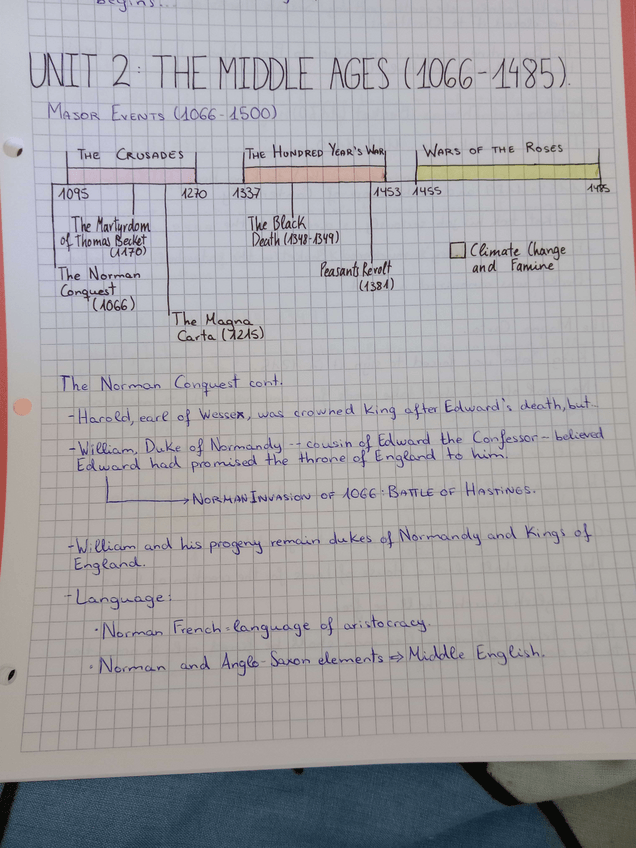 begins.
UNIT 2: THE MIDDLE AGES (1066-1485).
MAJOR EVENTS (1066-1500)
THE CRUSADES
THE HUNDRED YEAR'S WAR
WARS OF THE ROSES
1095 1270 1337 1453 1455 1485
The Martyrdom
of Thomas Becket
(1170)
The Black
Death (1348-1349)
The Norman
Conquest
(1066)
Peasants Revolt
(1381)
Climate Change
and Famine
The Magna
Carta (1215)
The Norman Conquest cont.
-Harold, earl of Wessex, was crowned king after Edward's death, but...
-William, Duke of Normandy -- cousin of Edward the Confessor - believed
Edward had promised the throne of England to him.
→ NORMAN INVASION OF 1066: BATTLE OF HASTINGS.
-William and his progeny remain dukes of Normandy and Kings of
England.
-Language:
·Norman French: language of aristocracy
·Norman and Anglo-Saxon elements ⇒ Middle English.